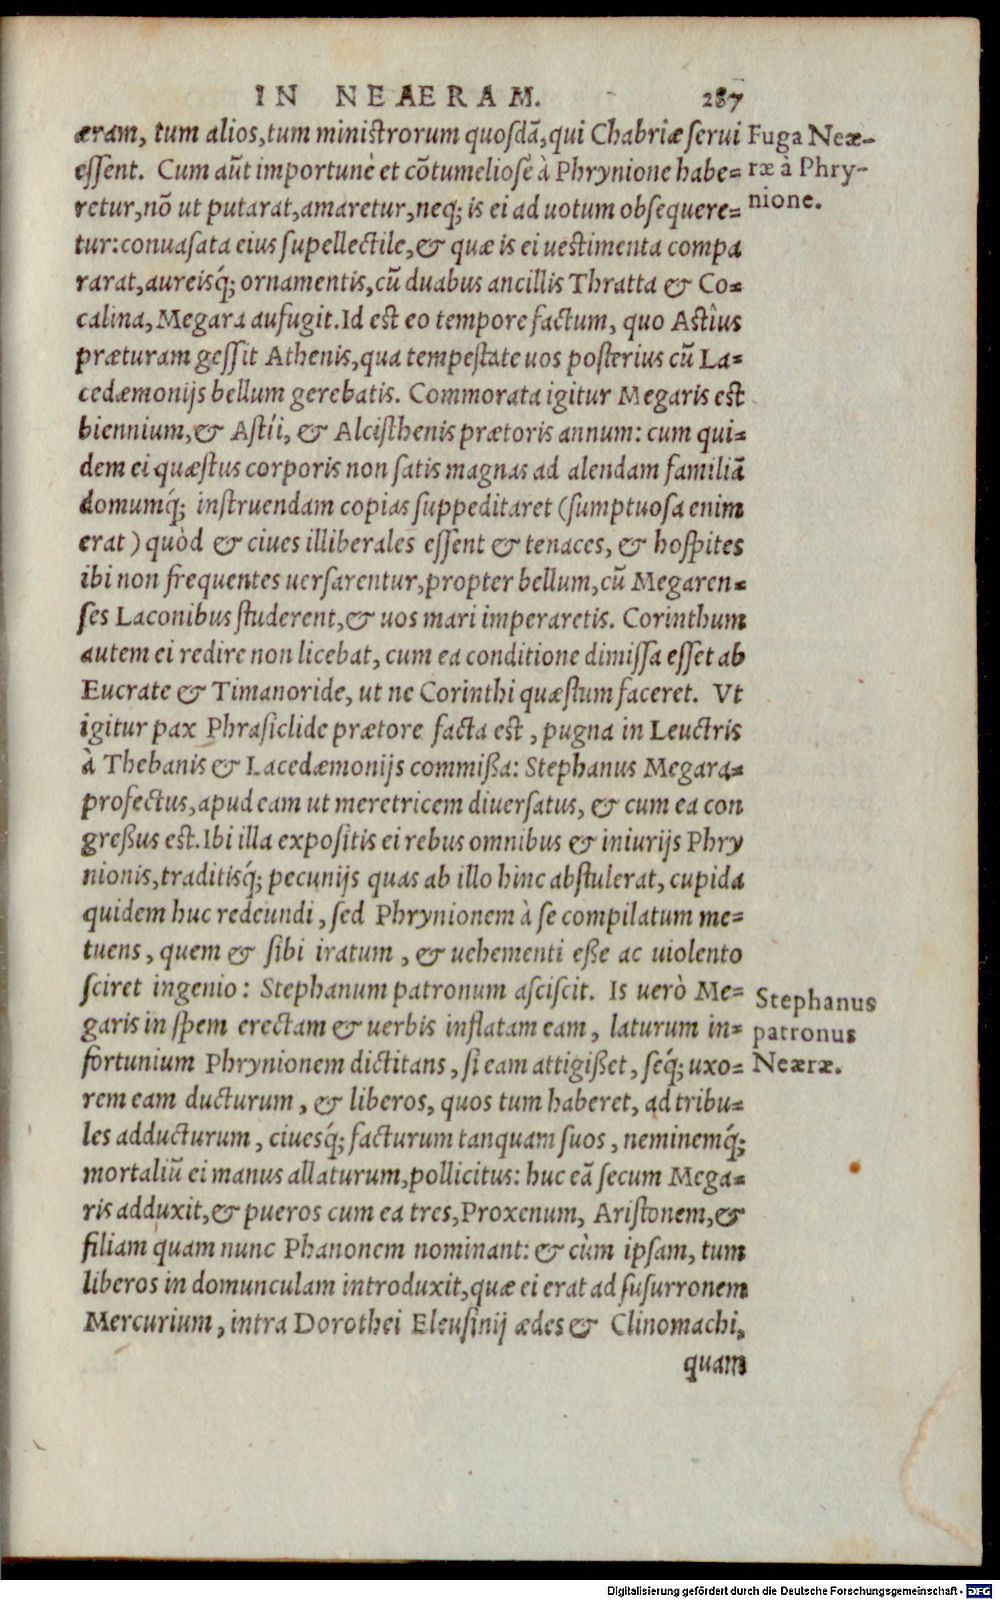 IN NEAERAM. 287
æram, tum alios, tum ministrorum quosdā, qui Chabriæ serui
essent. Cum aūt importunè et cōtumeliosè à Phrynione habe=
retur, nō ut putarat, amaretur, neq; is ei ad uotum obsequere=
tur: conuasata eius supellectile, & quæ is ei uestimenta compa
rarat, aureisq́; ornamentis, cū duabus ancillis Thratta & Co=
calina, Megara aufugit. Id est eo tempore factum, quo Astîus
præturam gessit Athenis, qua tempestate uos posterius cū La=
cedæmonijs bellum gerebatis. Commorata igitur Megaris est
biennium, & Astíi, & Alcisthenis prætoris annum: cum qui=
dem ei quæstus corporis non satis magnas ad alendam familiā
domumq́; instruendam copias suppeditaret (sumptuosa enim
erat) quòd & ciues illiberales essent & tenaces, & hospites
ibi non frequentes uersarentur, propter bellum, cū Megaren=
ses Laconibus studerent, & uos mari imperaretis. Corinthum
autem ei redire non licebat, cum ea conditione dimissa esset ab
Eucrate & Timanoride, ut ne Corinthi quæstum faceret. Vt
igitur pax Phrasiclide prætore facta est, pugna in Leuctris
à Thebanis & Lacedæmonijs commißa: Stephanus Megara=
profectus, apud eam ut meretricem diuersatus, & cum ea con
greßus est. Ibi illa expositis ei rebus omnibus & iniurijs Phry
nionis, traditisq́; pecunijs quas ab illo hinc abstulerat, cupida
quidem huc redeundi, sed Phrynionem à se compilatum me=
tuens, quem & sibi iratum, & uehementi eße ac uiolento
sciret ingenio: Stephanum patronum asciscit. Is uerò Me=
garis in spem erectam & uerbis inflatam eam, laturum in=
fortunium Phrynionem dictitans, si eam attigißet, seq́; uxo=
rem eam ducturum, & liberos, quos tum haberet, ad tribu=
les adducturum, ciuesq́; facturum tanquam suos, neminemq́;
mortaliū ei manus allaturum, pollicitus: huc eā secum Mega=
ris adduxit, & pueros cum ea tres, Proxenum, Aristonem, &
filiam quam nunc Phanonem nominant: & cùm ipsam, tum
liberos in domunculam introduxit, quæ ei erat ad susurronem
Mercurium, intra Dorothei Eleusinij ædes & Clinomachi,
quam
Fuga Neæ-
ræ à Phry-
nione.
Stephanus
patronus
Neæræ.
Digitalisierung gefördert durch die Deutsche Forschungsgemeinschaft - DFG